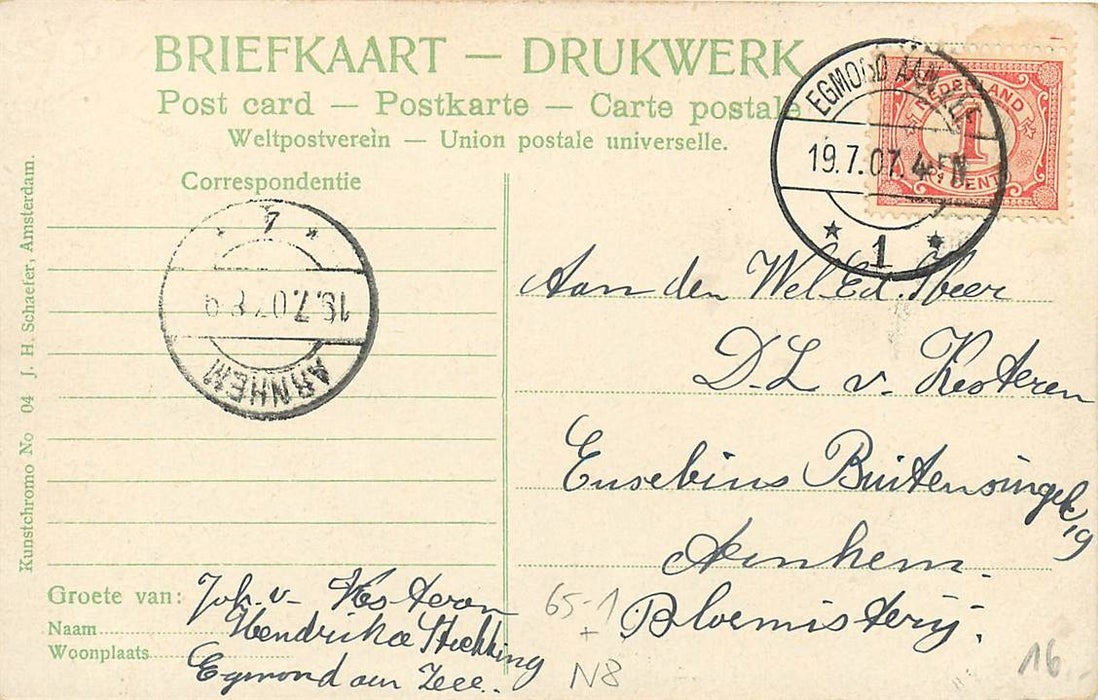 BRIEFKAART — DRUKWERK
Post card — Postkarte — Carte postale
Weltpostverein — Union postale universelle.
Correspondentie
EGMOND AAN ZEE
19.7.07. 4-5N
1
NEDERLAND
1
CENT
4
19.7.07. 8-9
ARNHEM
Kunstchromo No 04 J. H. Schaefer, Amsterdam.
Aan den Wel.Ed. Heer
D. L. v. Kesteren
Eusebius Buitensingel
19
Arnhem.
Bloemisterij.
Groete van: Joh. v. Kesteren
Naam Hendrika Stichting
Woonplaats Egmond aan Zee.
65-1
+
N8
16